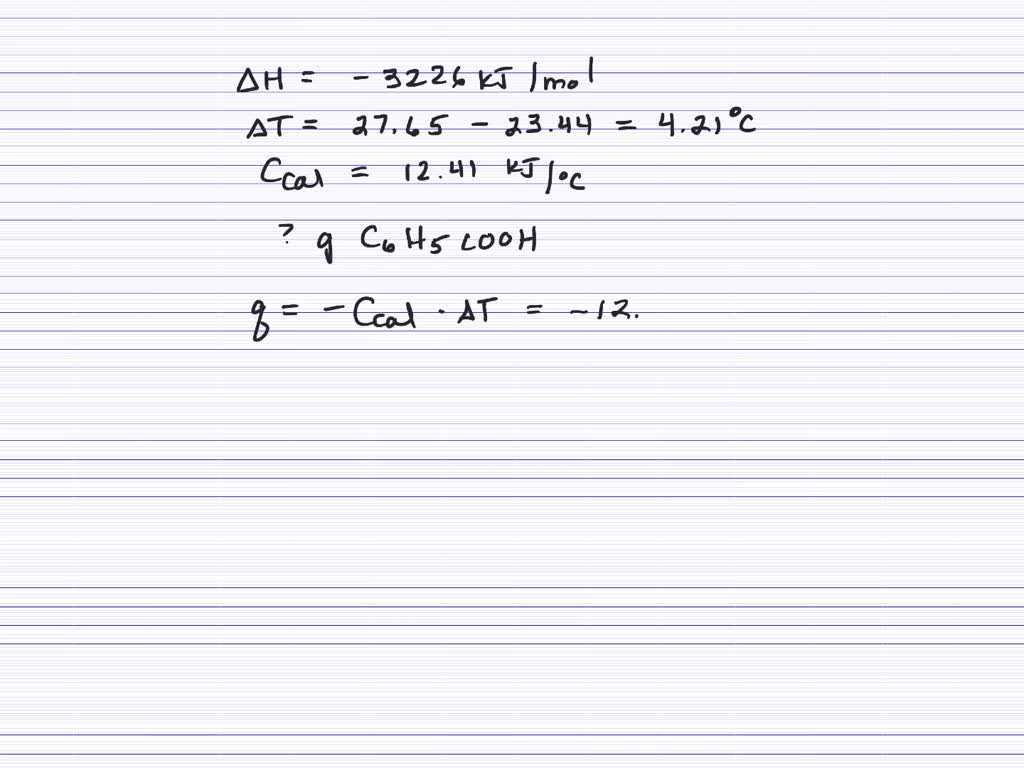 ΔH = -3226 kJ/mol
ΔT = 27.65 - 23.44 = 4.21°C
Ccal = 12.41 kJ/°C
? g C6H5COOH
q = -Ccal · ΔT = -12.